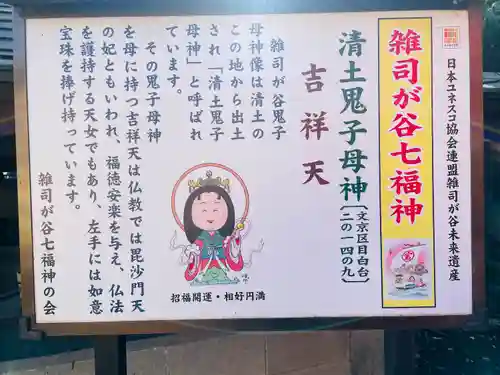 日本ユネスコ協会連盟雑司が谷未来遺産
雑司が谷七福神
清土鬼子母神〔文京区目白台二の一四の九〕
吉祥天
雑司が谷鬼子
母神像は清土の
この地から出土
され「清土鬼子
母神」と呼ばれ
ています。
その鬼子母神
を母に持つ吉祥天は仏教では毘沙門天
の妃ともいわれ、福徳安楽を与え、仏法
を護持する天女でもあり、左手には如意
宝珠を捧げ持っています。
雑司が谷七福神の会
招福開運・相好円満